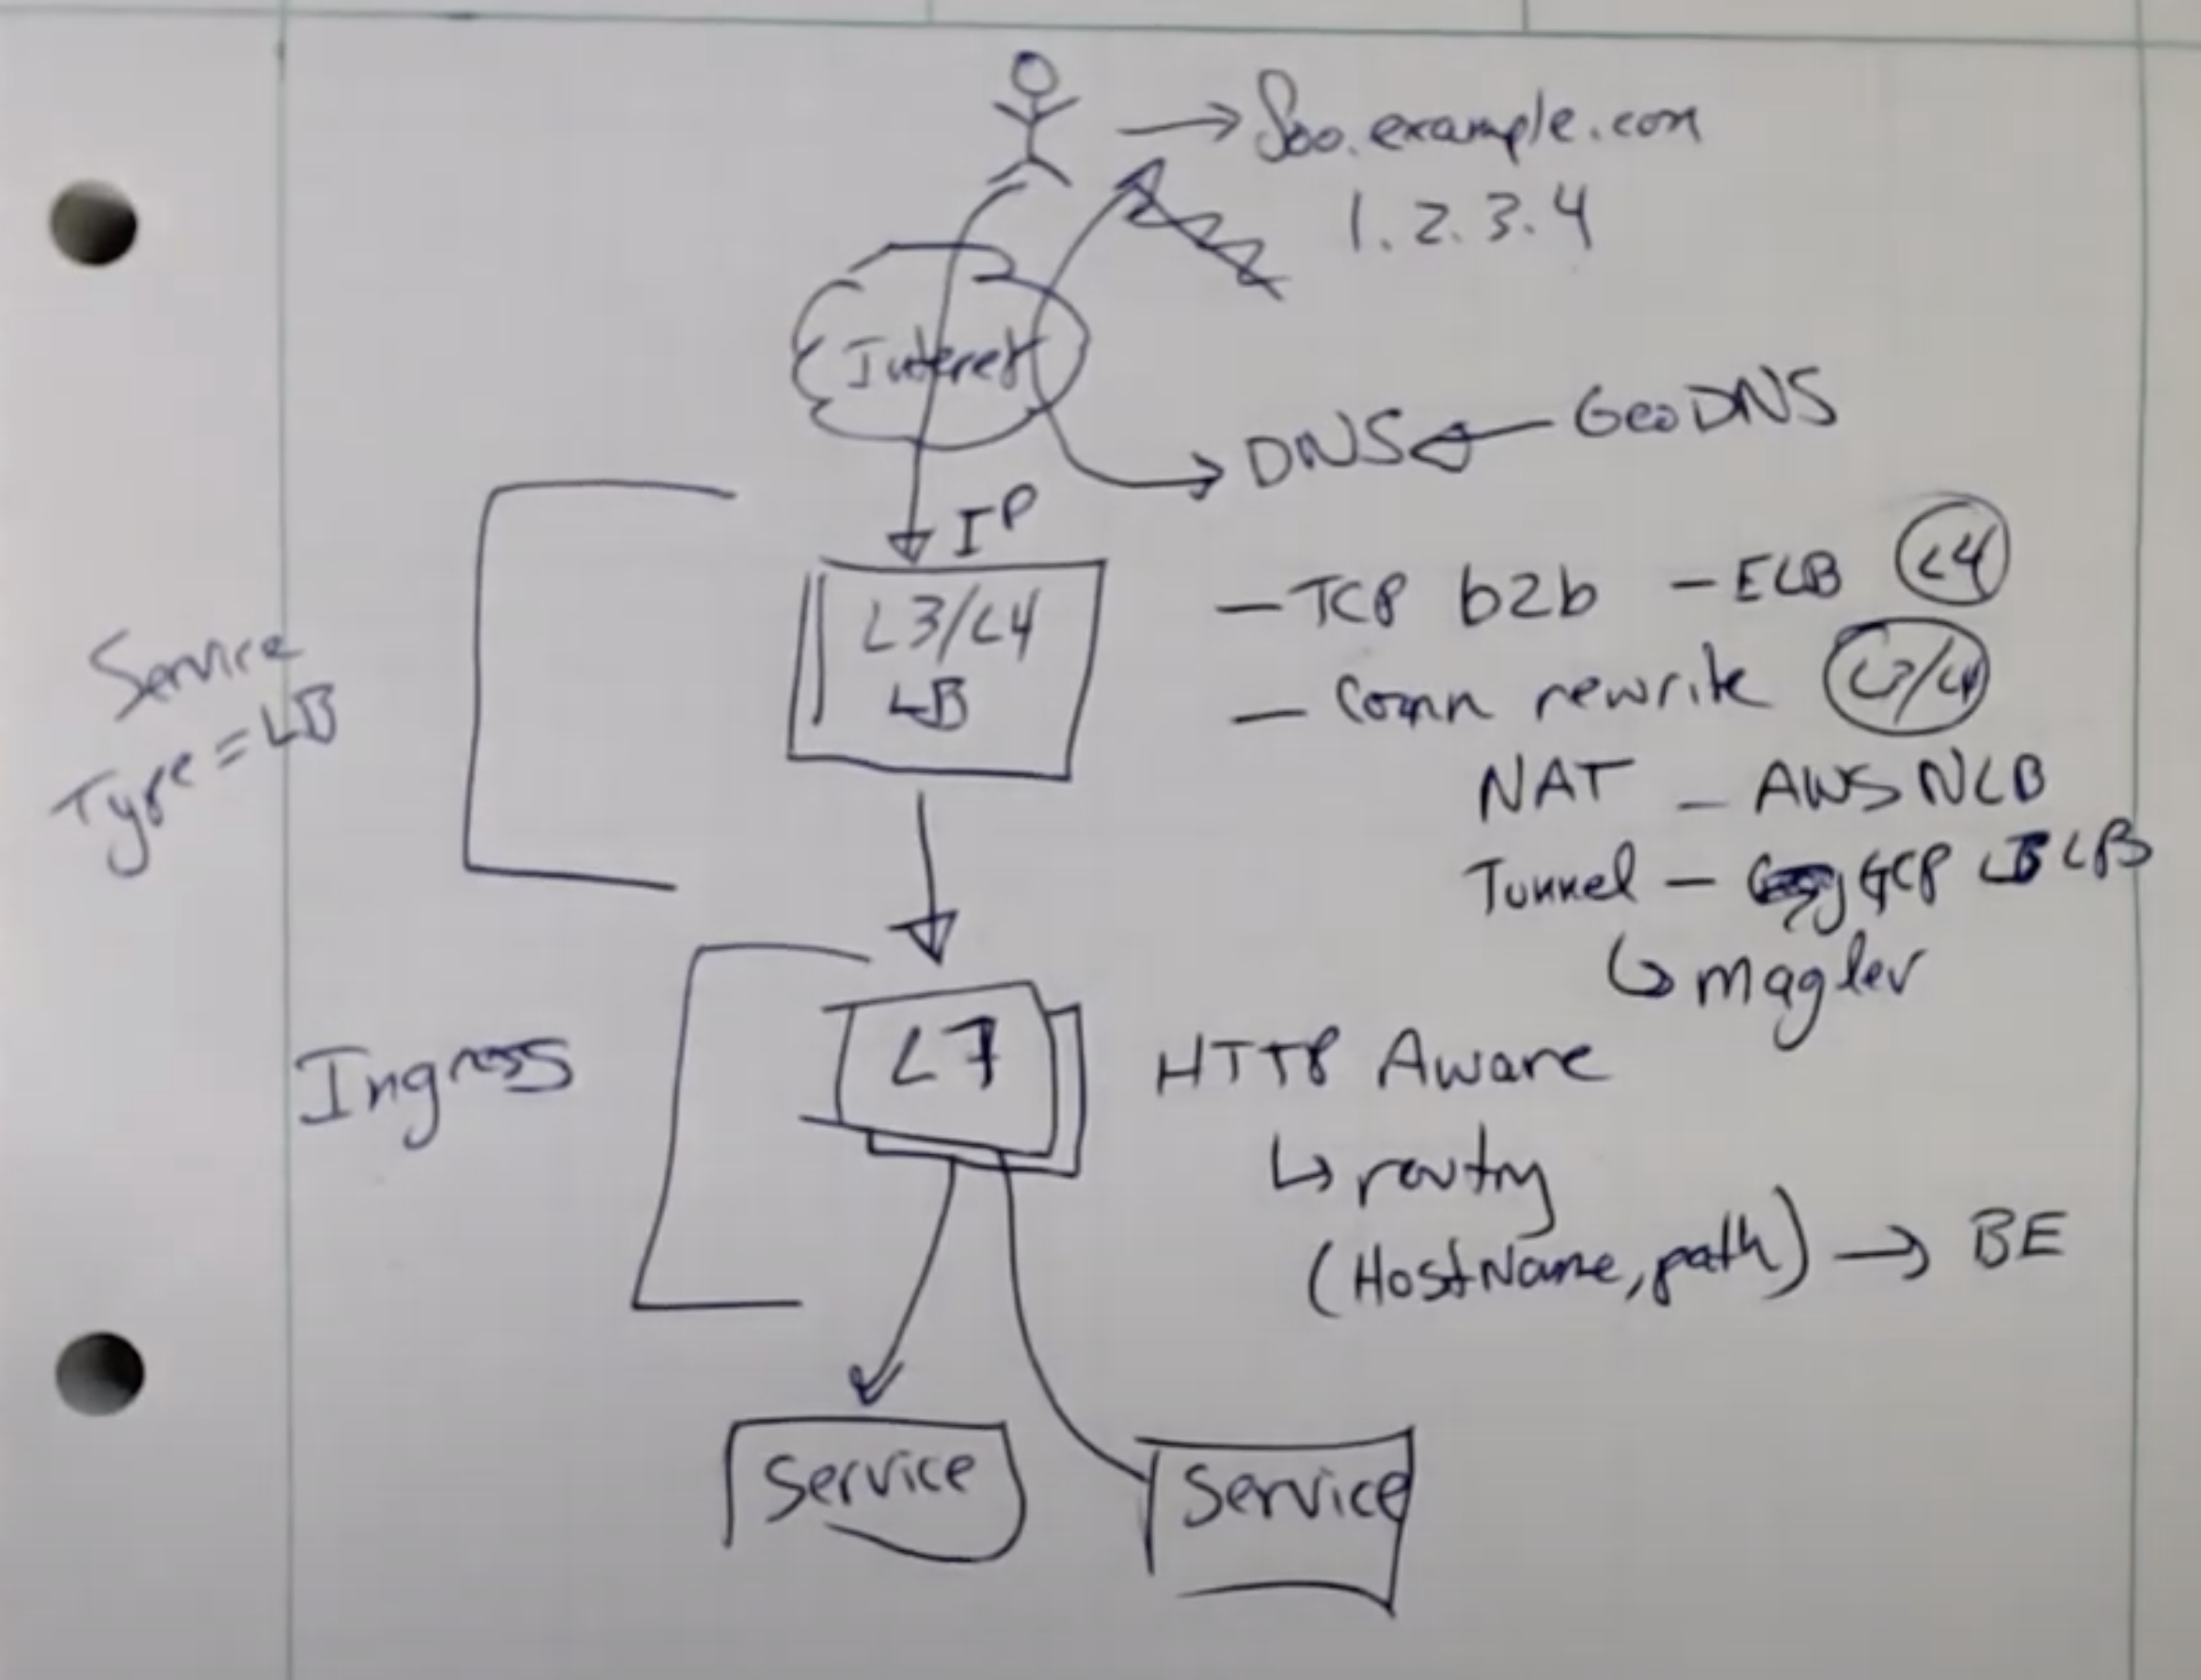 foo.example.com
1.2.3.4
Internet
DNS
GeoDNS
IP
L3/L4
LB
- TCP b2b - ELB L4
- Conn rewrite L3/L4
NAT - AWS NLB
Tunnel - GCP LB
↳ maglev
Service
Type = LB
L7
HTTP Aware
↳ routing
(HostName, path) → BE
Ingress
Service
Service